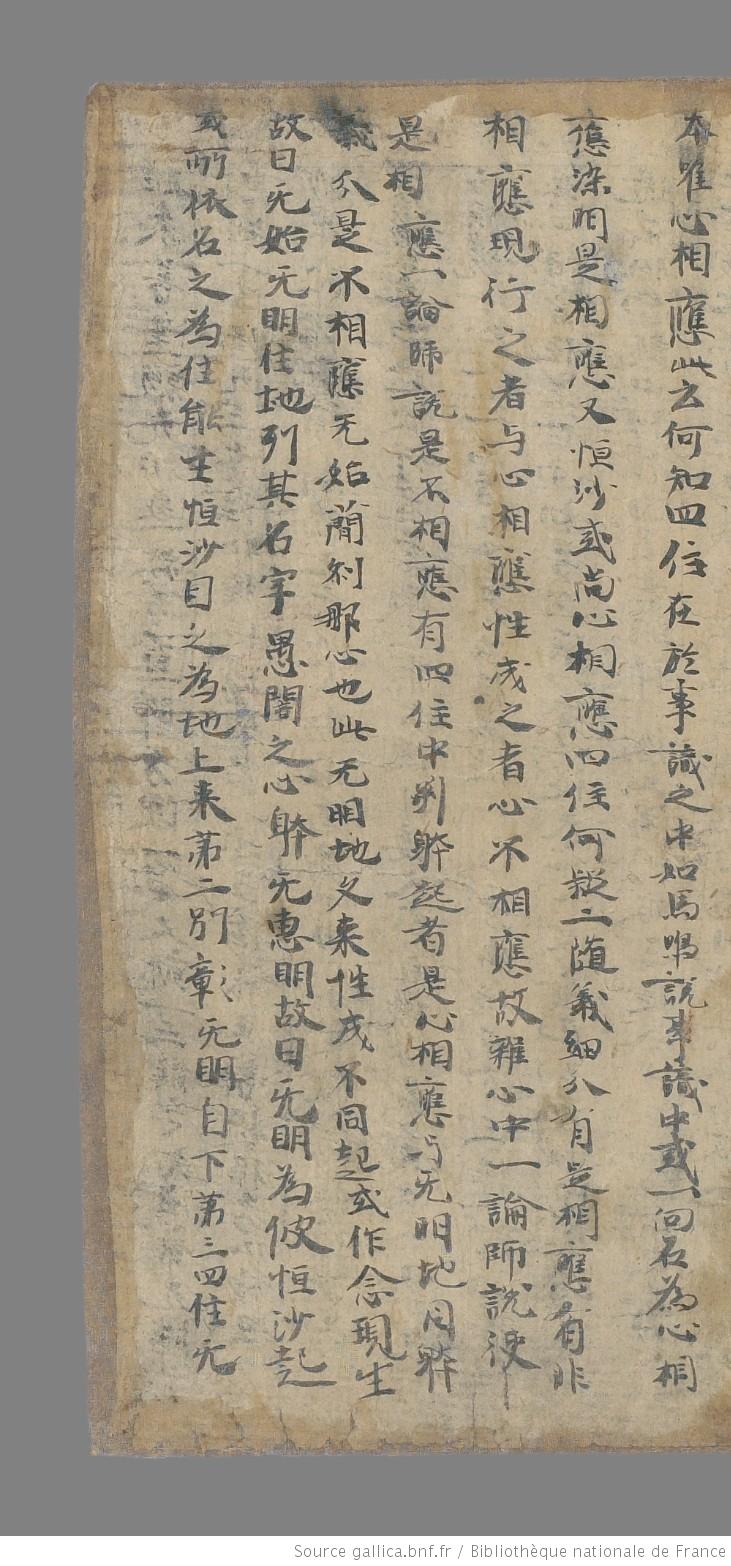 本唯心相應此云何知四住在於事識之中如馬鳴說事識中或一向名為心相
應染明是相應又恒沙或尚心相應四住何疑二随義細分有是相應有非
相應現行之者与心相應性成之者心不相應故雜心中一論師說使
是相應一論師說是不相應有四住中別躰起者是心相應与无明地同躰
義分是不相應无始蕳剎那心也此无明地久来性成不同起或作念現生
故曰无始无明住地列其名字愚闇之心躰无惠明故曰无明為彼恒沙起
或所依名之為住能生恒沙目之為地上来第二別彰无明自下第三四住无
Source gallica.bnf.fr / Bibliothèque nationale de France